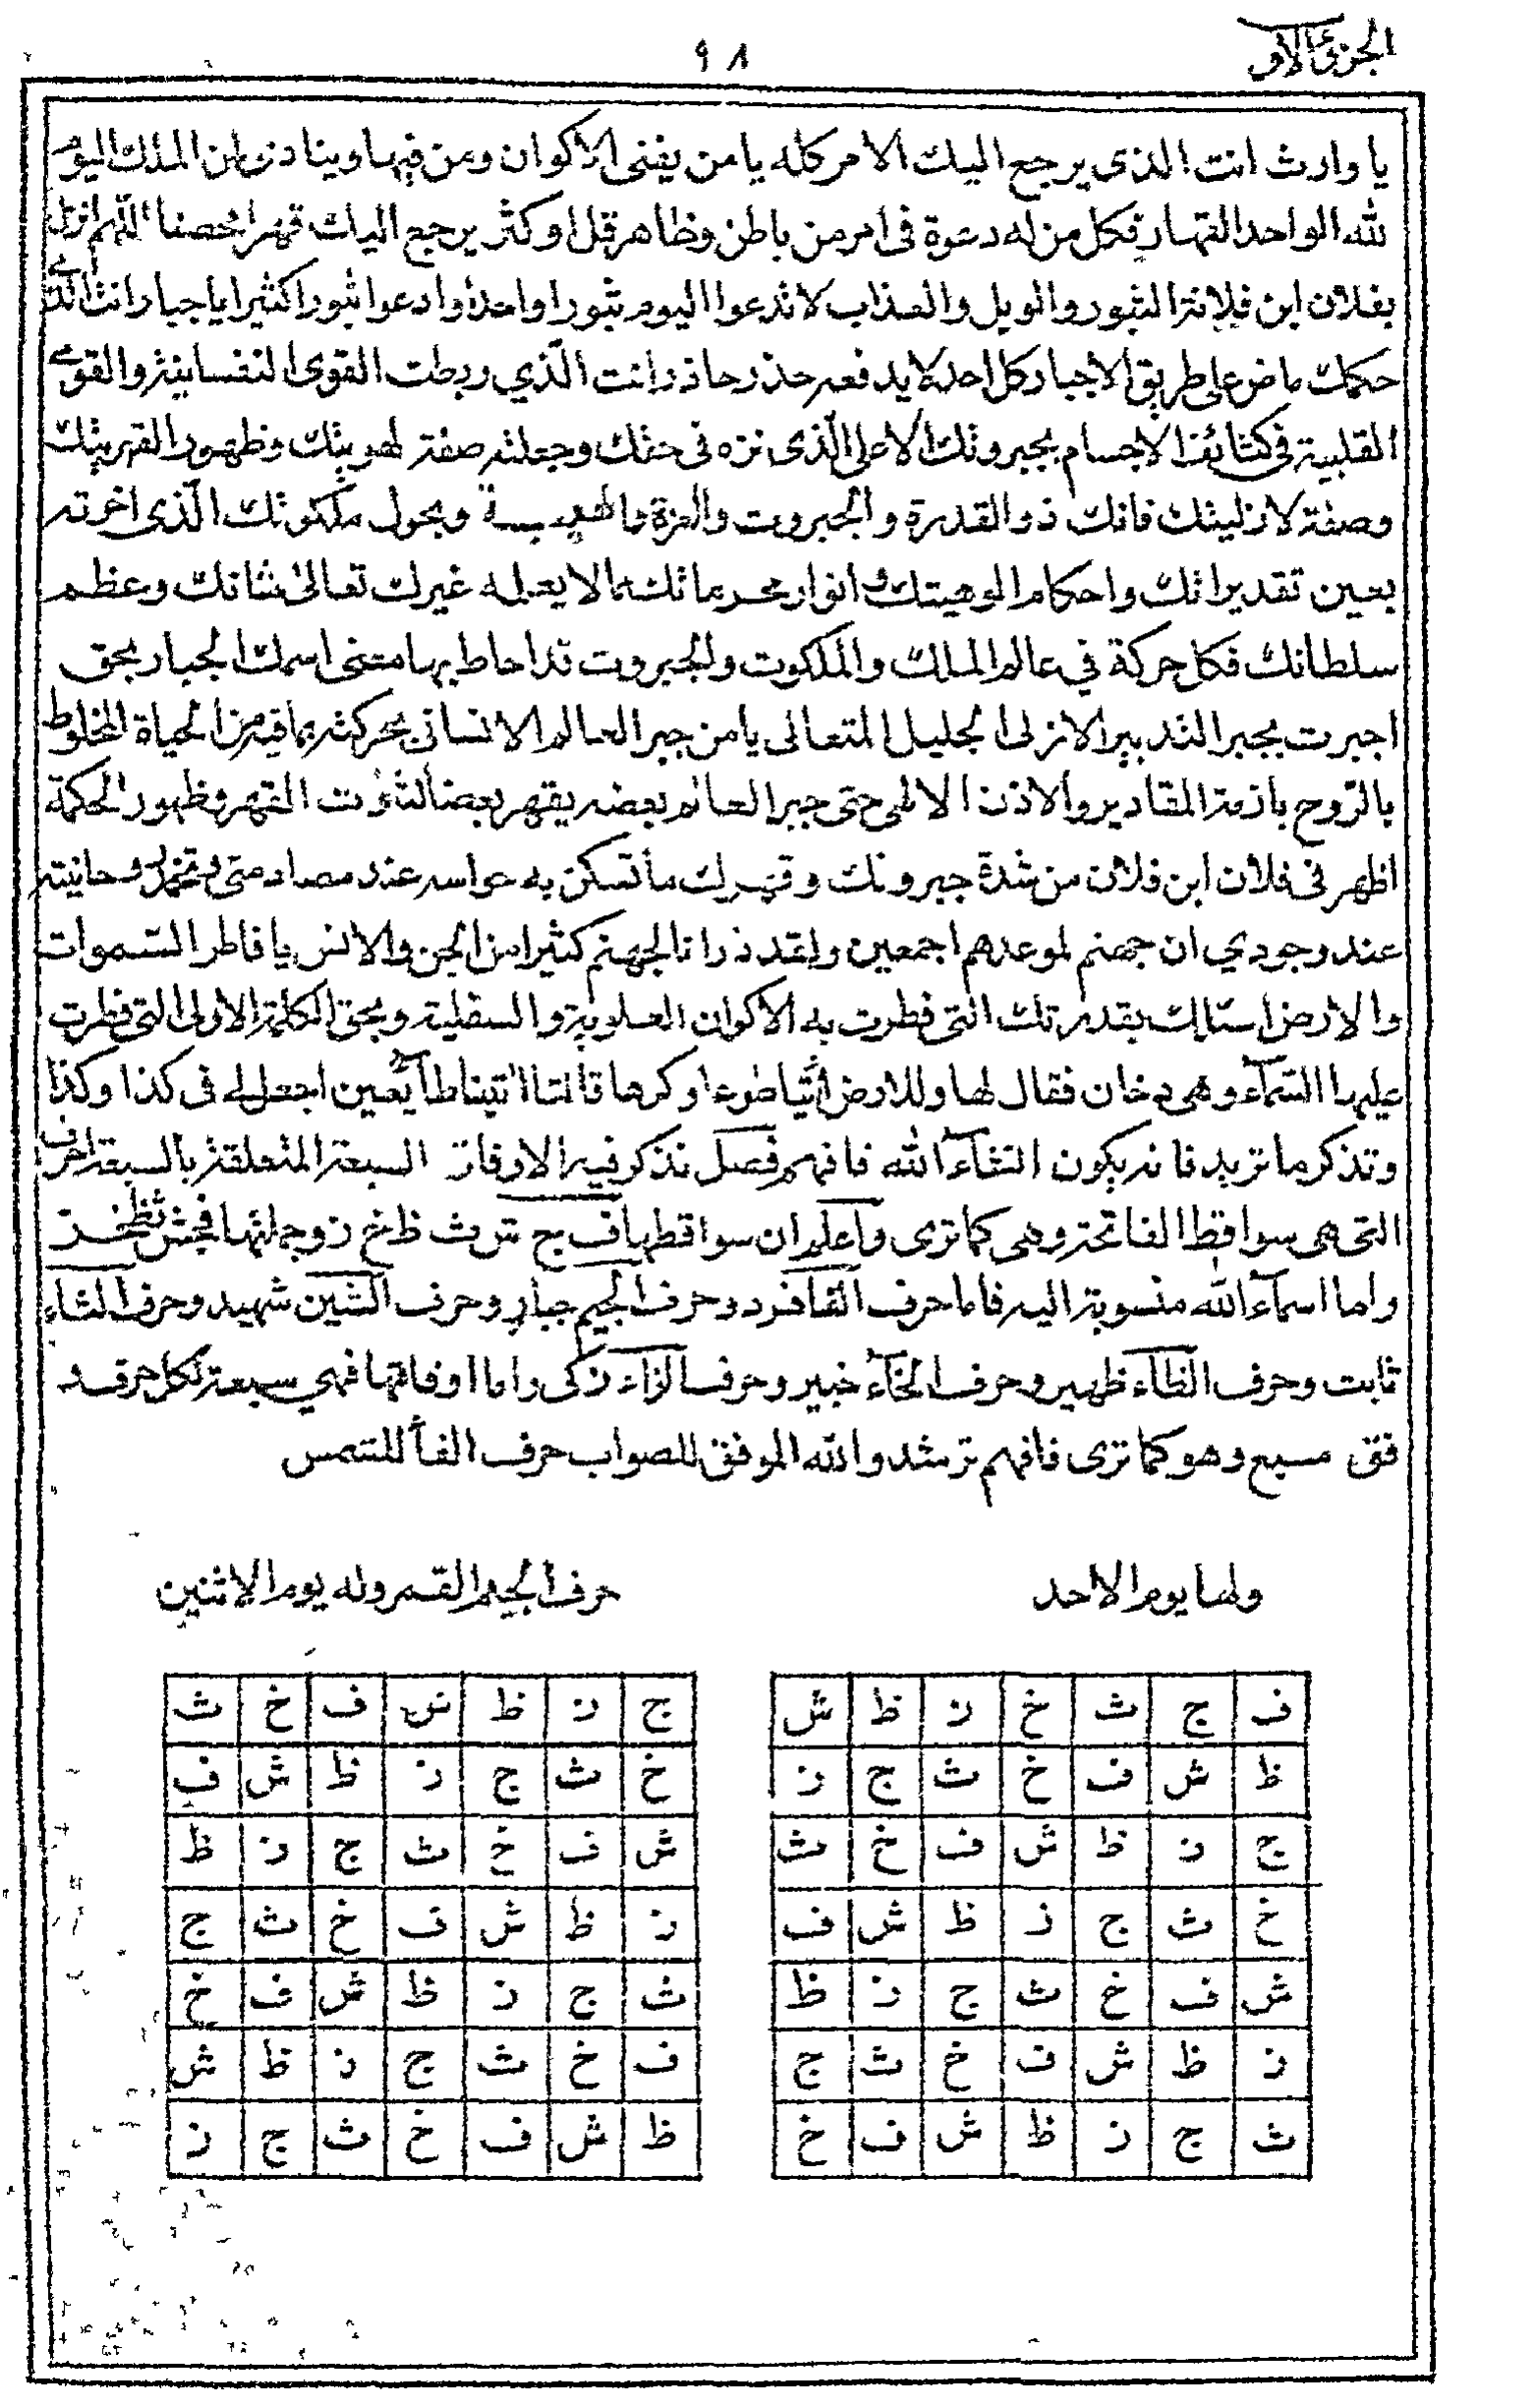 الجزئ الاول
٩٨
يا وارث انت الذى يرجع اليك الامر كله يا من يفنى الاكوان ومن فيها وينادى لمن الملك اليوم
لله الواحد القهار فكل من له دعوة فى امر من باطن وظاهر قل او كثر يرجع اليك قهرا محضنا اللهم انزل
بفلان ابن فلانة الثبور والويل والعذاب لا تدعوا اليوم ثبورا واحدا وادعوا ثبورا كثيرا يا جبار انت الذى
حكمك ماض على طريق الاجبار كل احد لا يدفعه حذر حاذر انت الذي ربطت القوى النفسانية والقوى
القلبية فى كثائف الاجسام بجبروتك الاعلى الذى نزه فى حقك وجعلته صفة لهويتك وظهور القهريتك
وصفة لازليتك فانك ذو القدرة والجبروت والعزة والهيبة وبحول ملكوتك الذى اخرته
بعين تقديراتك واحكام الوهيتك وانوار محرماتك مالا يعلمه غيرك تعالى شانك وعظم
سلطانك فكل حركة في عالم الملك والملكوت والجبروت قد احاط بها معنى اسمك الجبار بحق
اجبرت بجبر التدبير الازلى الجليل المتعالى يا من جبر العالم الانسانى بحركته بما فيه من الحياة المخلوط
بالروح بازمة المقادير والاذن الالهى حتى جبر العالم بعضه يقهر بعضا لثبوت القهر وظهور الحكمة
اظهر فى فلان ابن فلان من شدة جبروتك وقهرك ما تسكن به حواسه عند مصادمتى وتخمل روحانيته
عند وجودي ان جهنم لموعدهم اجمعين ولقد ذرانا لجهنم كثيرا من الجن والانس يا فاطر السموات
والارض اسئلك بقدرتك التى فطرت به الاكوان العلوية والسفلية وبحق الكلمة الاولى التى فطرت
عليها السمآء وهى دخان فقال لها وللارض أئتيا طوعا او كرها قالتا اتينا طآئعين اجعل لى فى كذا وكذا
وتذكر ما تريد فانه يكون انشآء الله فافهم فصل نذكر فيه الاوفاق السبعة المتعلقة بالسبعة احرف
التى هى سواقط الفاتحة وهى كما ترى واعلم ان سواقطها ف ج ش ث ظ خ ز وجملتها فجش ثظخز
واما اسمآء الله منسوبة اليه فاما حرف الفا فرد وحرف الجيم جبار وحرف الشين شهيد وحرف الثاء
ثابت وحرف الظآء ظهير وحرف الخآء خبير وحرف الزاء زكى واما اوفاقها فهي سبعة لكل حرف و
فق مسبع وهو كما ترى فافهم ترشد والله الموفق للصواب حرف الفأ للشمس
ولها يوم الاحد
حرف الجيم القمر وله يوم الاثنين
ف ج ث خ ز ظ ش
ظ ش ف خ ث ج ز
ج ز ظ ش ف خ ث
خ ث ج ز ظ ش ف
ش ف خ ث ج ز ظ
ز ظ ش ف خ ث ج
ث ج ز ظ ش ف خ
ج ز ظ ش ف خ ث
خ ث ج ز ظ ش ف
ش ف خ ث ج ز ظ
ز ظ ش ف خ ث ج
ث ج ز ظ ش ف خ
ف خ ث ج ز ظ ش
ظ ش ف خ ث ج ز